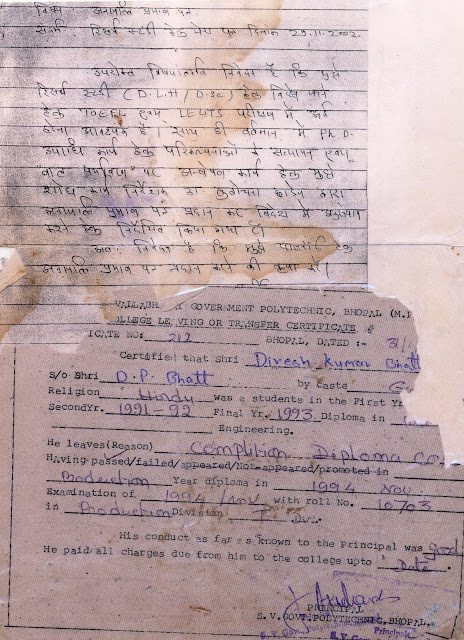 विषय अनापत्ति प्रमाण पत्र
संदर्भ :- रिसर्च स्टडी हेतु मेरा पत्र दिनांक 29.11.2002.
उपरोक्त विषयान्तर्गत निवेदन है कि मुझे
रिसर्च स्टडी (D.Litt / D.Sc) हेतु विदेश जाने
हेतु TOEFL एवम IELTS परीक्षा में
होना आवश्यक है। साथ ही वर्तमान में Ph.D.
उपाधि कार्य हेतु परिकल्पनाओं के सत्यापन एवम्
पर अन्वेषण कार्य हेतु मुझे
शोध कार्य निर्देशक डा द्वारा
अनापत्ति प्रमाण पत्र प्रदान कर विदेश में
करने हेतु निर्देशित किया गया है।
अतः निवेदन है कि मुझे एक
अनापत्ति प्रमाण पत्र प्रदान करने की कृपा करें।
VALLABH GOVERNMENT POLYTECHNIC, BHOPAL (M.P
COLLEGE LEAVING OR TRANSFER CERTIFICATE
ICATE NO: 212 BHOPAL, DATED :- 31/
Certified that Shri Divesh Kumar Bhatt
S/o Shri D.P. Bhatt by Caste G
Religion Hindu was a students in the First Yr
Second Yr. 1991-92 Final Yr. 1993 Diploma in
Engineering.
He leaves(Reason) Complition Diploma Co
Having passed/failed/appeared/Not-appeared/promoted in
Production Year diploma in 1994 Nov.
Examination of 1994 / Nov with roll No. 10703
in Production Division I Div.
His conduct as far as known to the Principal was good
He paid all charges due from him to the college upto Date.
PRINCIPAL
S.V.GOVT.POLYTECHNIC, BHOPAL.
Principal